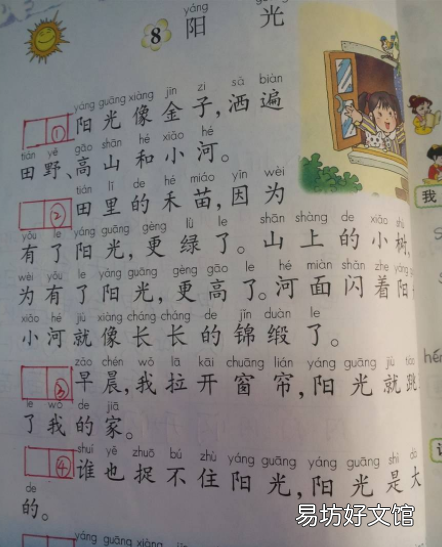 yáng
8 阳 光
yáng guāng xiàng jīn zi sǎ biàn
① 阳光像金子，洒遍
tián yě gāo shān hé xiǎo hé
田野、高山和小河。
tián lǐ de hé miáo yīn wèi
② 田里的禾苗，因为
yǒu le yáng guāng gèng lǜ le shān shàng de xiǎo shù
有了阳光，更绿了。山上的小树，
wèi yǒu le yáng guāng gèng gāo le hé miàn shǎn zhe yáng
为有了阳光，更高了。河面闪着阳
xiǎo hé jiù xiàng cháng cháng de jǐn duàn le
小河就像长长的锦缎了。
zǎo chén wǒ lā kāi chuāng lián yáng guāng jiù tiào
③ 早晨，我拉开窗帘，阳光就跳
le wǒ de jiā
了我的家。
shuí yě zhuō bú zhù yáng guāng yáng guāng shì dà
④ 谁也捉不住阳光，阳光是大
de
的。
yáng guāng xiàng
我
易坊好文馆